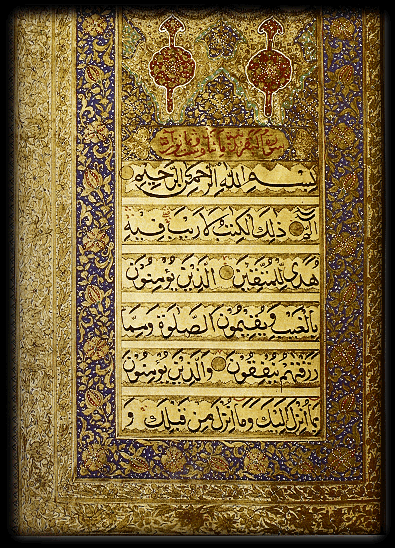 بِسْمِ اللهِ الرَّحْمٰنِ الرَّحِيْمِ
الٓمّٓ ذٰلِكَ الْكِتٰبُ لَا رَيْبَ فِيْهِ
هُدًى لِّلْمُتَّقِيْنَ الَّذِيْنَ يُؤْمِنُوْنَ
بِالْغَيْبِ وَيُقِيْمُوْنَ الصَّلٰوةَ وَمِمَّا
رَزَقْنٰهُمْ يُنْفِقُوْنَ وَالَّذِيْنَ يُؤْمِنُوْنَ
بِمَا اُنْزِلَ اِلَيْكَ وَمَا اُنْزِلَ مِنْ قَبْلِكَ وَ